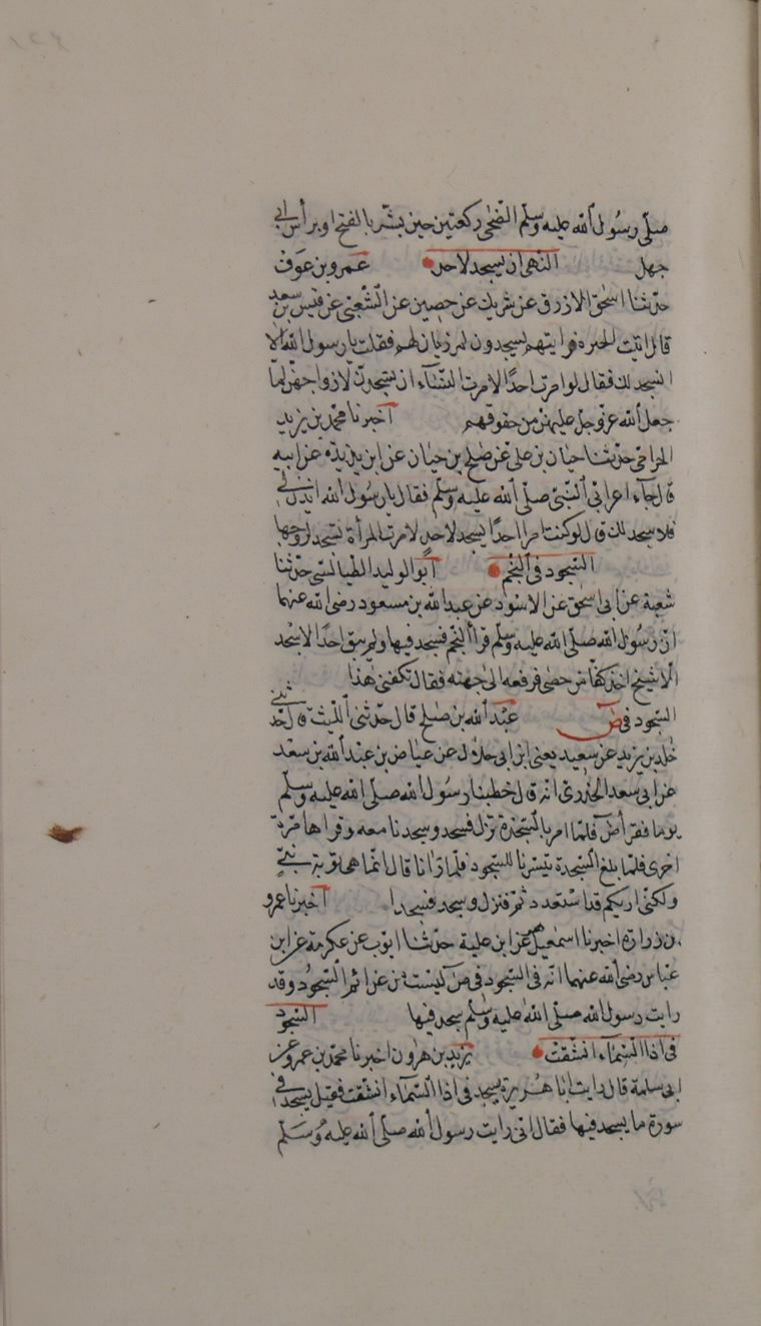 صلّى رسُول الله عليه وسلّم الضّحى ركعتين حين بشّر بالفتح او برأس ابى
جهل النّهى ان يسجد لاحد عمرو بن عَوف
حدّثنا اسحٰق الازرق عن شريك عن حصين عن الشّعبى عن قيس بن سعد
قال اتيت الحيرة فرايتهم يسجدون لمرزبان لهم فقلت يارسول الله الا
نسجد لك فقال لو امرت احدًا لامرت النّسآء ان يسجدن لازواجهنّ لما
جعل الله عزّوجلّ عليهنّ من حقوقهم اخبرنا محمّد بن يزيد
الحزامى حدّثنا حبان بن على عن صٰلح بن حيّان عن ابن بريدة عن ابيه
قال جآء اعرابى النّبى صلّى الله عليه وسلّم فقال يارسُول الله ايذن لى
فلاسجد لك قال لو كنت امرا احدًا يسجد لاحد لامرت المرأة تسجد لزوجها
السّجود فى النّجم ابو الوليد الطيالسى حدّثنا
شعبة عن ابى اسحٰق عن الاسود عن عبد الله بن مسعود رضى الله عنهما
انّ رسُول الله صلّى الله عليه وسلّم قرأ النّجم فسجد فيها ولم يبق احدًا الا سجد
الّا شيخ اخذ كفّا من حصى فرفعه الى جبهته فقال تكفنى هٰذا
السّجود فى صٓ عبد الله بن صٰلح قال حدّثنى اللّيث قال حدّثنى
خٰلد بن يزيد عن سعيد يعنى ابن ابى هلال عن عياض بن عبد الله بن سعد
عن ابى سعد الخدرى انّه قال خطبنا رسُول الله صلّى الله عليه وسلّم
يوما فقرأ صٓ فلمّا امر بالسّجدة نزل فسجد وسجدنا معه وقراها مرّة
اخرى فلمّا بلغ السّجدة تيسّرنا للسّجود فلمّا رآنا قال انّما هى توبة نبىّ
ولكنّى اريكم قد استعددتم فنزل وسجد فسجدا اخبرنا عمرو
بن زرارة اخبرنا اسمٰعيل هو ابن علية حدّثنا ايّوب عن عكرمة عن ابن
عبّاس رضى الله عنهما انّه فى السّجود فى صٓ ليست من عزائم السّجود وقد
رايت رسول الله صلّى الله عليه وسلّم سجد فيها السّجود
فى اذا السّمآء انشقّت يزيد بن هٰرون اخبرنا محمّد بن عمرو عن
ابى سلمة قال رايت ابا هريرة يسجد فى اذا السّمآء انشقّت فقيل يسجد فى
سورة ما يسجد فيها فقال انّى رايت رسول الله صلّى الله عليه وسلّم